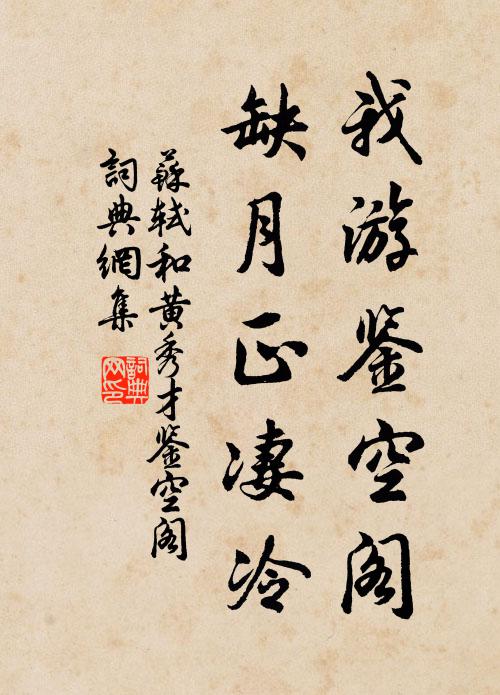 我游鉴空阁
缺月正凄冷
蘇軾和黄秀才鉴空阁
詞典網集
詞典网印